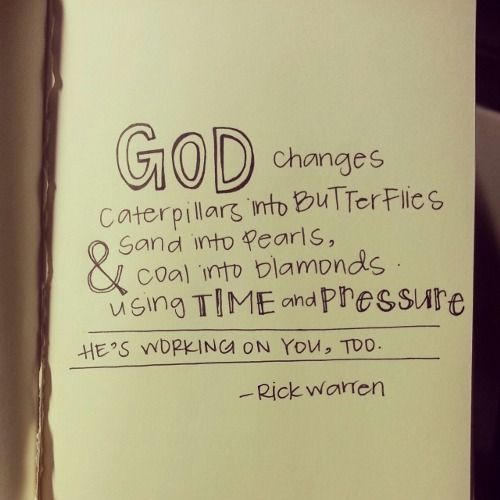 GOD changes
caterpillars into BuTTerFlies
& sand into Pearls,
coal into Diamonds.
using TIME and Pressure
HE'S WORKING ON YOU, TOO.
- Rick Warren